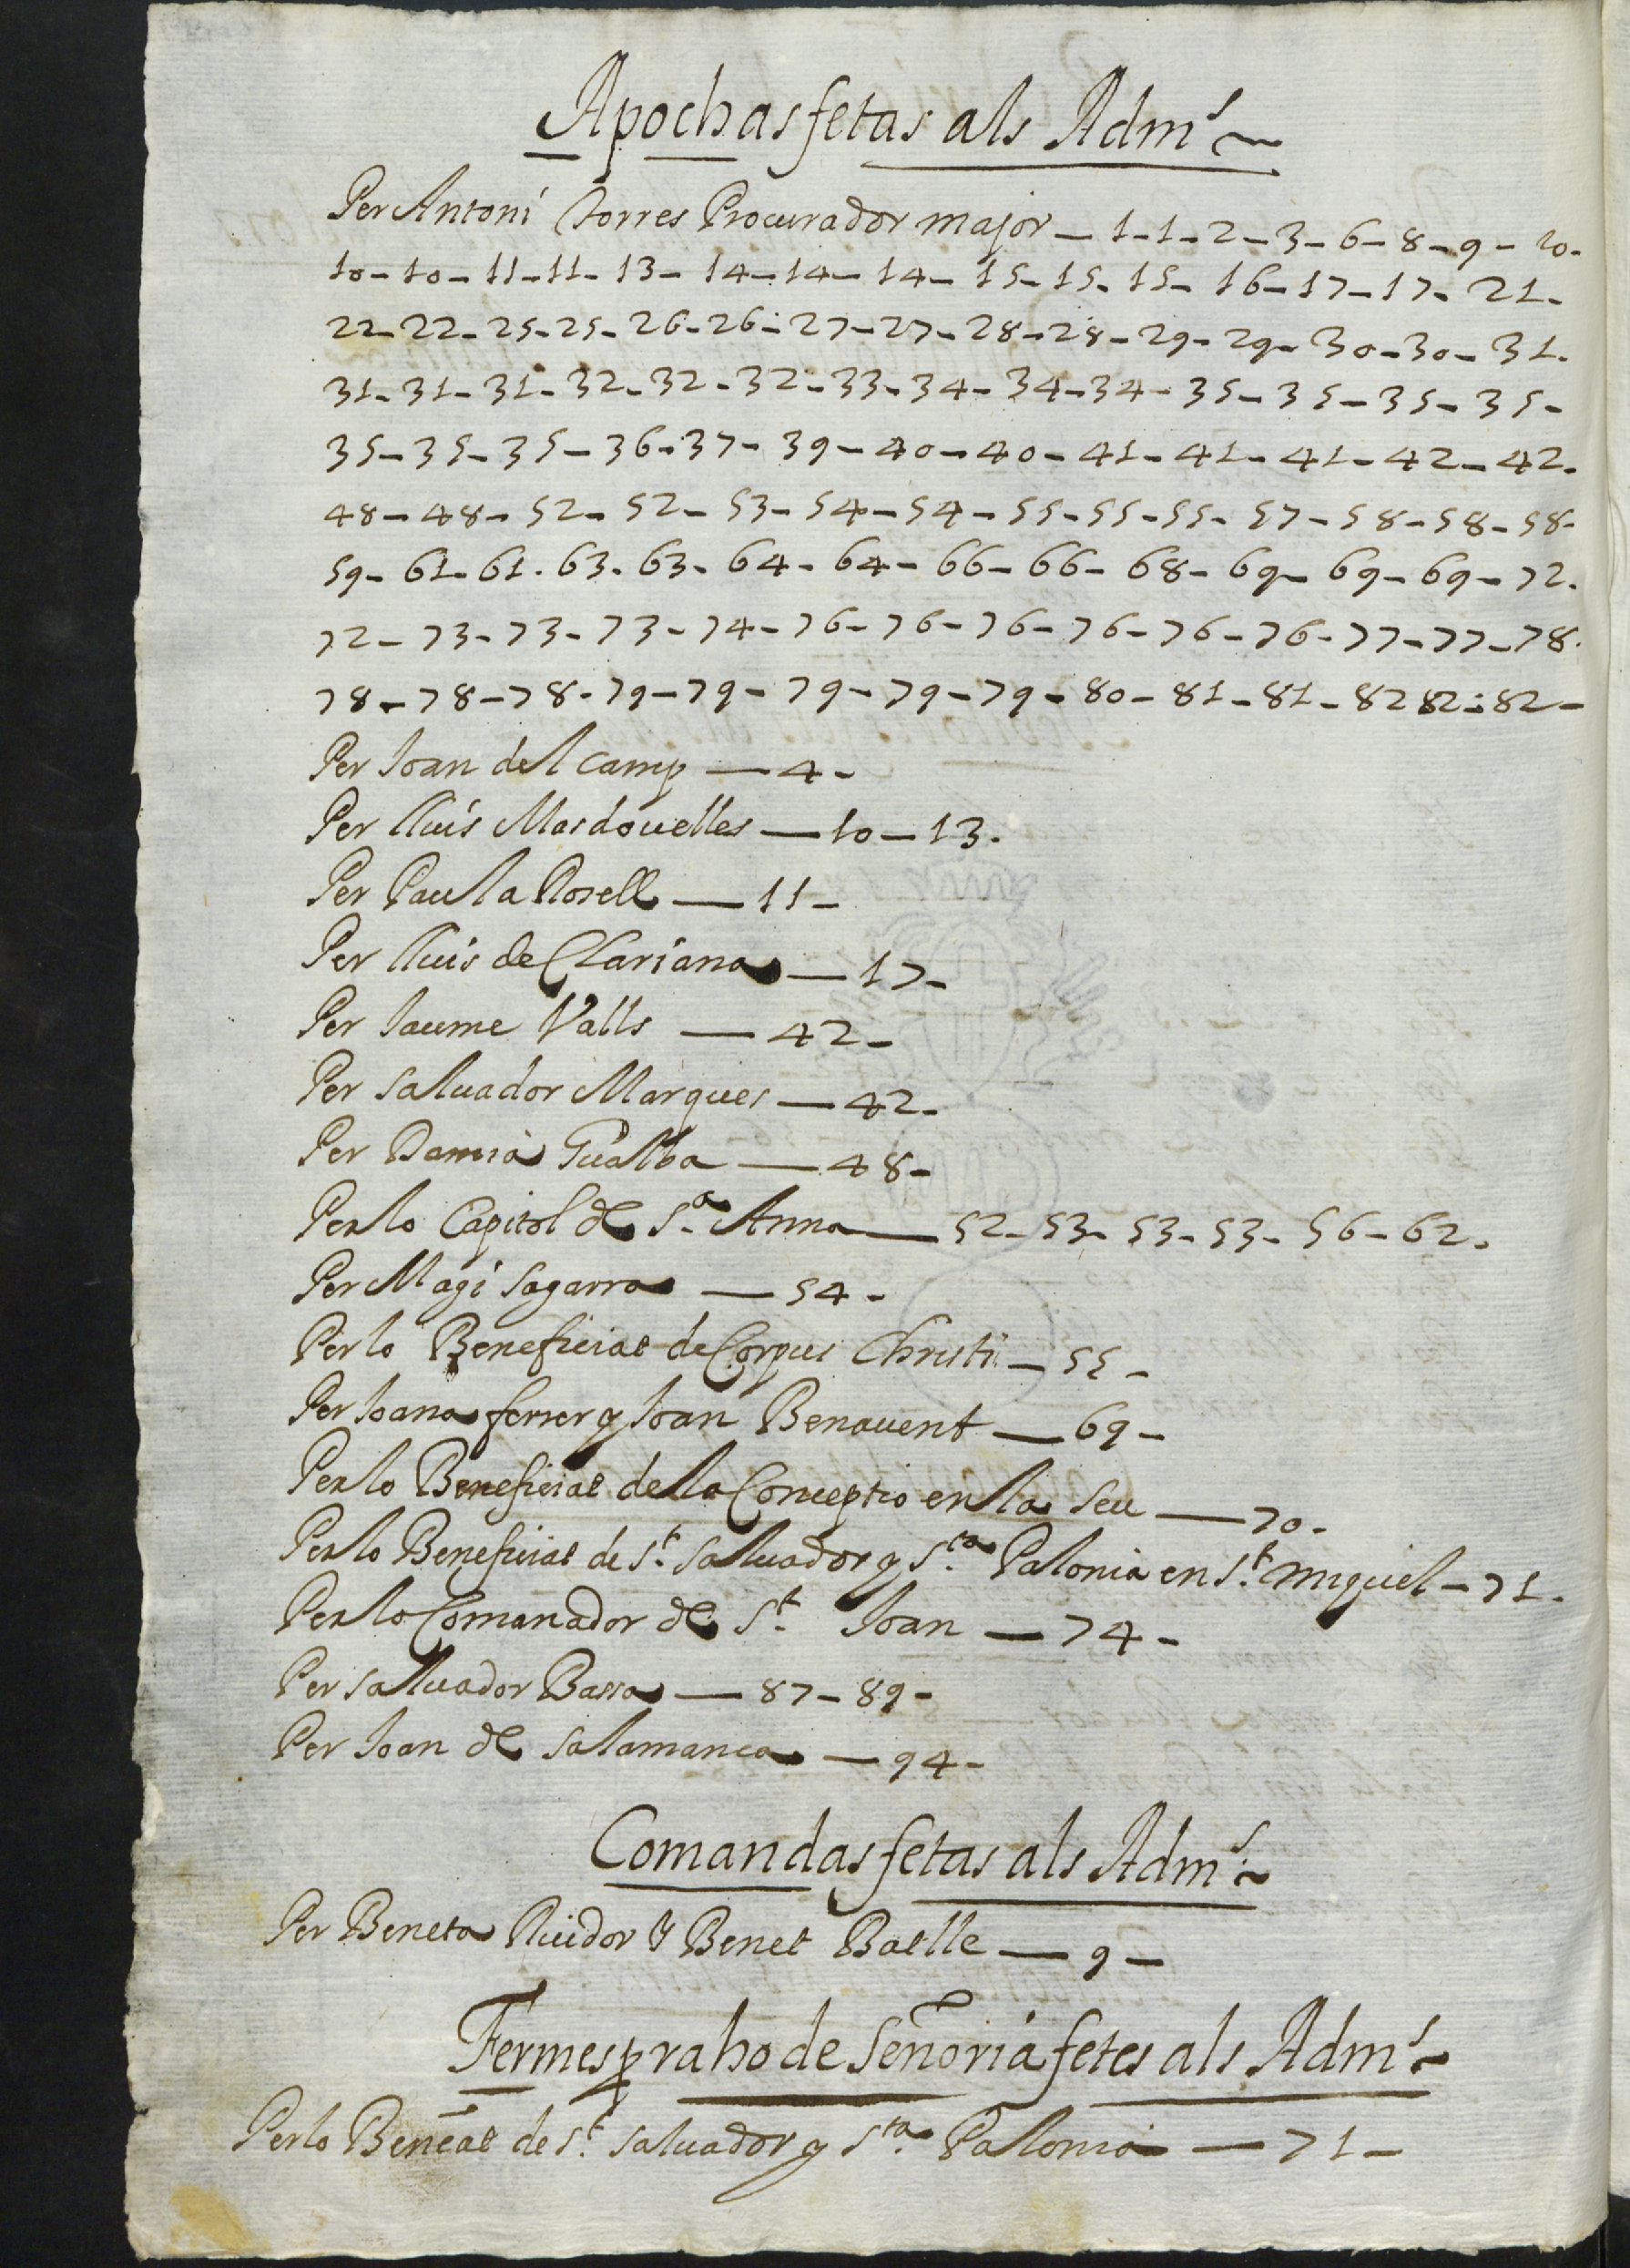 Apochas fetas als Adm.s
Per Antoni Torres Procurador major — 1 - 1 - 2 - 3 - 6 - 8 - 9 - 10 -
10 - 10 - 11 - 11 - 13 - 14 - 14 - 14 - 15 - 15 - 15 - 16 - 17 - 17 - 21 -
22 - 22 - 25 - 25 - 26 - 26 - 27 - 27 - 28 - 28 - 29 - 29 - 30 - 30 - 31 -
31 - 31 - 31 - 32 - 32 - 32 - 33 - 34 - 34 - 34 - 35 - 35 - 35 - 35 -
35 - 35 - 35 - 36 - 37 - 39 - 40 - 40 - 41 - 41 - 41 - 42 - 42 -
48 - 48 - 52 - 52 - 53 - 54 - 54 - 55 - 55 - 55 - 57 - 58 - 58 - 58 -
59 - 61 - 61 - 63 - 63 - 64 - 64 - 66 - 66 - 68 - 69 - 69 - 69 - 72 -
72 - 73 - 73 - 73 - 74 - 76 - 76 - 76 - 76 - 76 - 76 - 77 - 77 - 78 -
78 - 78 - 78 - 79 - 79 - 79 - 79 - 79 - 80 - 81 - 81 - 82 82 - 82 -
Per Joan del Camp — 4 -
Per lluis Masdovelles — 10 - 13 -
Per Paula Rosell — 11 -
Per lluis de Clariana — 17 -
Per Jaume Valls — 42 -
Per salvador Marques — 42 -
Per Damia Gualba — 48 -
Per lo Capitol de S.a Anna — 52 - 53 - 53 - 53 - 56 - 62 -
Per Magi sagarra — 54 -
Per lo Beneficiat de Corpus Christi — 55 -
Per Joana ferrer y Joan Benavent — 69 -
Per lo Beneficiat de la Conceptio en la Seu — 70 -
Per lo Beneficiat de S.t salvador y S.ta Palonia en S.t miquel — 71 -
Per lo Comanador de S.t Joan — 74 -
Per salvador Bassa — 87 - 89 -
Per Joan de salamanca — 94 -
Comandas fetas als Adm.s
Per Beneta Ruidor y Benet Batlle — 9 -
Fermes p raho de Señoria fetes als Adm.s
Per lo Beneat de S.t salvador y S.ta Palonia — 71 -